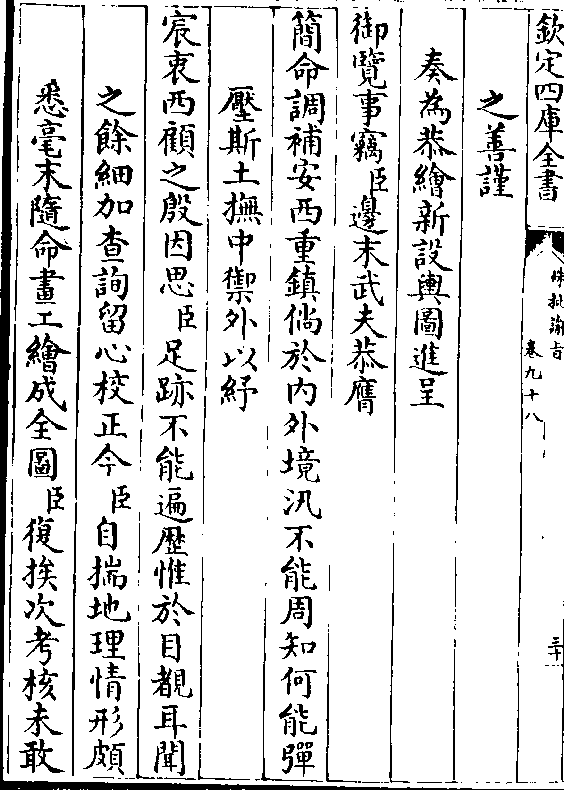 欽定四庫全書
硃批諭旨
卷九十八
三十
之善謹
奏為恭繪新設輿圖進呈
御覽事竊臣邊末武夫恭膺
簡命調補安西重鎮倘於內外境汛不能周知何能彈
壓斯土撫中禦外以紓
宸衷西顧之殷因思臣足跡不能遍歷惟於目覩耳聞
之餘細加查詢留心校正今臣自揣地理情形頗
悉毫末隨命畫工繪成全圖臣復挨次考核未敢